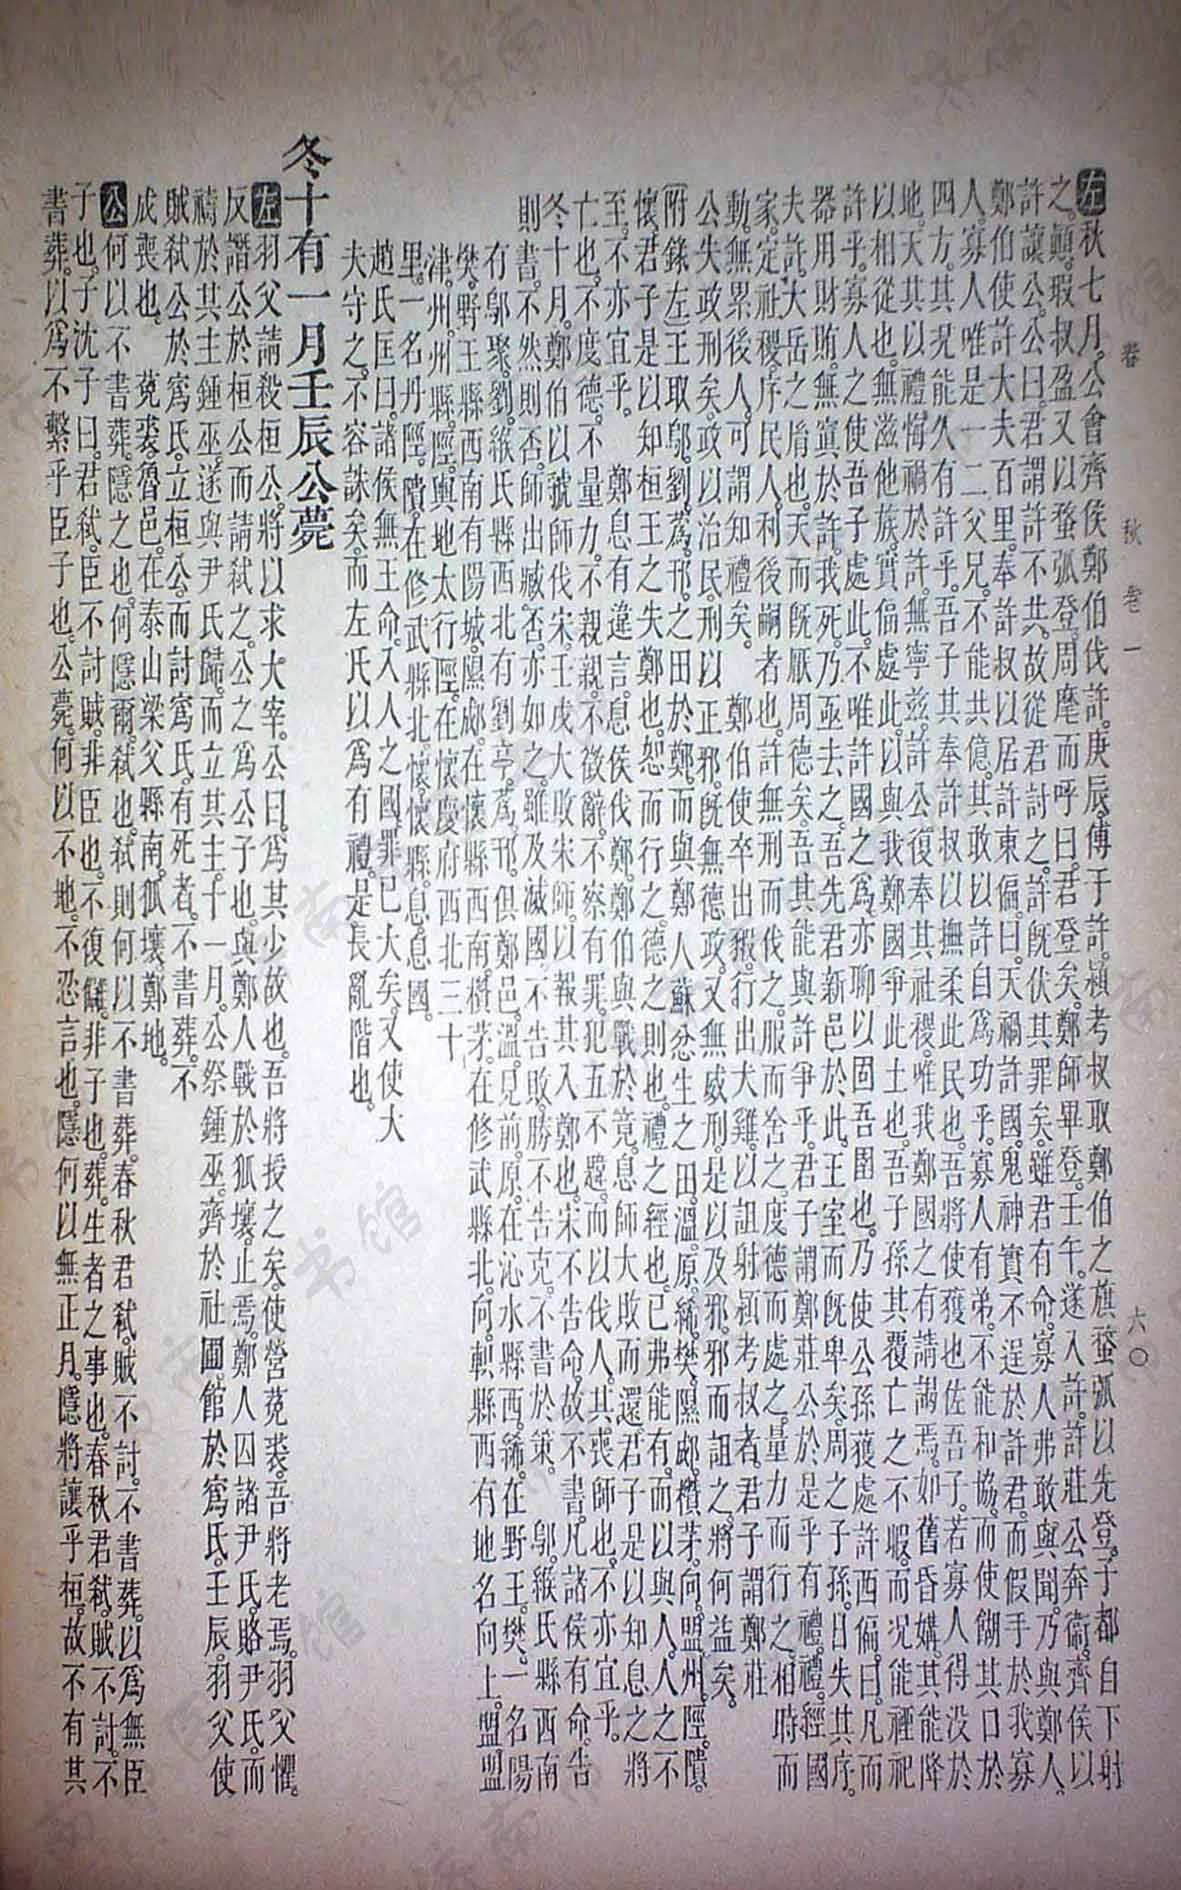 春 秋 卷一 六〇
左 秋七月。公會齊侯鄭伯伐許。庚辰。傅于許。潁考叔取鄭伯之旗蝥弧以先登。子都自下射
之。顛。瑕叔盈又以蝥弧登。周麾而呼曰。君登矣。鄭師畢登。壬午。遂入許。許莊公奔衞。齊侯以
許讓公。公曰。君謂許不共。故從君討之。許旣伏其罪矣。雖君有命。寡人弗敢與聞。乃與鄭人。
鄭伯使許大夫百里。奉許叔以居許東偏。曰。天禍許國。鬼神實不逞於許君。而假手於我寡
人。寡人唯是一二父兄。不能共億。其敢以許自爲功乎。寡人有弟。不能和協。而使餬其口於
四方。其況能久有許乎。吾子其奉許叔以撫柔此民也。吾將使獲也佐吾子。若寡人得没於
地。天其以禮悔禍於許。無寧茲許公復奉其社稷。唯我鄭國之有請謁焉。如舊昏媾。其能降
以相從也。無滋他族。實偪處此。以與我鄭國爭此土也。吾子孫其覆亡之不暇。而況能禋祀
許乎。寡人之使吾子處此。不唯許國之爲。亦聊以固吾圉也。乃使公孫獲處許西偏。曰。凡而
器用財賄。無寘於許。我死。乃亟去之。吾先君新邑於此。王室而旣卑矣。周之子孫。日失其序。
夫許。大岳之胤也。天而旣厭周德矣。吾其能與許爭乎。君子謂鄭莊公於是乎有禮。禮。經國
家。定社稷。序民人。利後嗣者也。許無刑而伐之。服而舍之。度德而處之。量力而行之。相時而
動。無累後人。可謂知禮矣。　鄭伯使卒出豭。行出犬雞。以詛射潁考叔者。君子謂鄭莊
公失政刑矣。政以治民。刑以正邪。旣無德政。又無威刑。是以及邪。邪而詛之。將何益矣。
〔附錄左〕王取鄔。劉。蒍。邘之田於鄭。而與鄭人蘇忿生之田。溫。原。絺。樊。隰郕。欑茅。向。盟。州。陘。隤。
懷。君子是以知桓王之失鄭也。恕而行之。德之則也。禮之經也。已弗能有。而以與人。人之不
至。不亦宜乎。　鄭息有違言。息侯伐鄭。鄭伯與戰於竟。息師大敗而還。君子是以知息之將
亡也。不度德。不量力。不親親。不徵辭。不察有罪。犯五不韙。而以伐人。其喪師也。不亦宜乎。
冬十月。鄭伯以虢師伐宋。壬戌。大敗宋師。以報其入鄭也。宋不告命。故不書。凡諸侯有命。告
則書。不然則否。師出臧否。亦如之。雖及滅國。不告敗。勝不告克。不書於策。　鄔。緱氏縣西南
有鄔聚。劉。緱氏縣西北有劉亭。蒍。邘。俱鄭邑。溫。見前。原。在沁水縣西。絺。在野王。樊。一名陽
樊。野王縣西南有陽城。隰郕。在懷縣西南。欑茅。在修武縣北。向。軹縣西有地名向上。盟。盟
津。州。州縣。陘。輿地太行陘。在懷慶府西北三十
里。一名丹陘。隤。在修武縣北。懷。懷縣。息。息國。
趙氏匡曰。諸侯無王命。入人之國。罪已大矣。又使大
夫守之。不容誅矣。而左氏以爲有禮。是長亂階也。
冬十有一月壬辰公薨
左 羽父請殺桓公。將以求大宰。公曰。爲其少故也。吾將授之矣。使營菟裘。吾將老焉。羽父懼。
反譖公於桓公而請弑之。公之爲公子也。與鄭人戰於狐壤。止焉。鄭人囚諸尹氏。賂尹氏。而
禱於其主鍾巫。遂與尹氏歸。而立其主。十一月。公祭鍾巫。齊於社圃。館於寪氏。壬辰。羽父使
賊弑公於寪氏。立桓公。而討寪氏。有死者。不書葬。不
成喪也。　菟裘。魯邑。在泰山梁父縣南。狐壤。鄭地。
公 何以不書葬。隱之也。何隱爾。弑也。弑則何以不書葬。春秋君弑。賊不討。不書葬。以爲無臣
子也。子沈子曰。君弑。臣不討賊。非臣也。不復讎。非子也。葬。生者之事也。春秋君弑。賊不討。不
書葬。以爲不繫乎臣子也。公薨。何以不地。不忍言也。隱何以無正月。隱將讓乎桓。故不有其